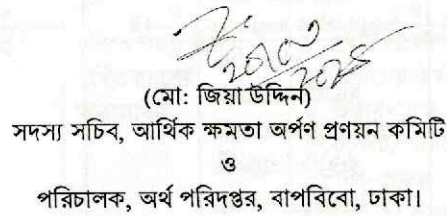 (মো: জিয়া উদ্দিন)
সদস্য সচিব, আর্থিক ক্ষমতা অর্পণ প্রণয়ন কমিটি
ও
পরিচালক, অর্থ পরিদপ্তর, বাপবিবো, ঢাকা।